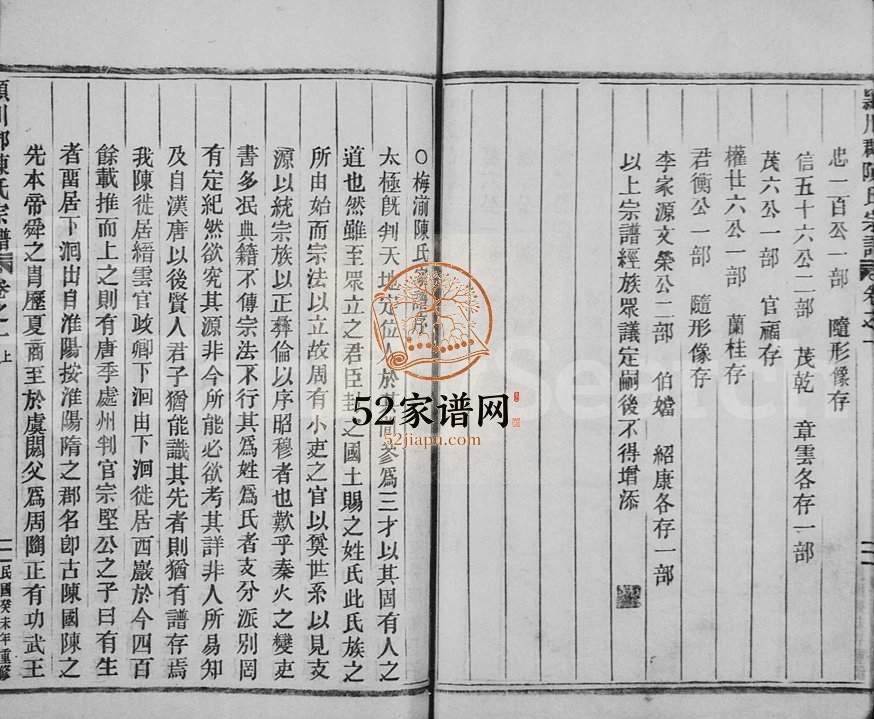 潁川郡陳氏宗譜 卷之一
忠一百公一部 隨形像存
信五十六公二部 茂乾 章雲各存一部
茂六公一部 官福存
權廿六公一部 蘭桂存
君衡公一部 隨形像存
李家源文榮公二部 伯嬑 紹康各存一部
以上宗譜經族眾議定嗣後不得增添
〇梅湔陳氏家譜序
太極旣判天地定位人於其間參爲三才以其固有人之
道也然雖至眾立之君臣封之國土賜之姓氏此氏族之
所由始而宗法以立故周有小吏之官以奠世系以見支
源以統宗族以正彝倫以序昭穆者也歎乎秦火之變吏
書多泯典籍不傳宗法不行其爲姓爲氏者支分派別罔
有定紀然欲究其源非今所能必欲考其詳非人所易知
及自漢唐以後賢人君子猶能識其先者則猶有譜存焉
我陳徙居縉雲官政卿下洄由下洄徙居西巖於今四百
餘載推而上之則有唐季處州判官宗堅公之子曰有生
者畱居下洄出自淮陽按淮陽隋之郡名卽古陳國陳之
先本帝舜之胄歷夏商至於虞閼父爲周陶正有功武王
潁川郡陳氏宗譜 卷之一上 二 民國癸未年重修
52家谱网
52jiapu.com